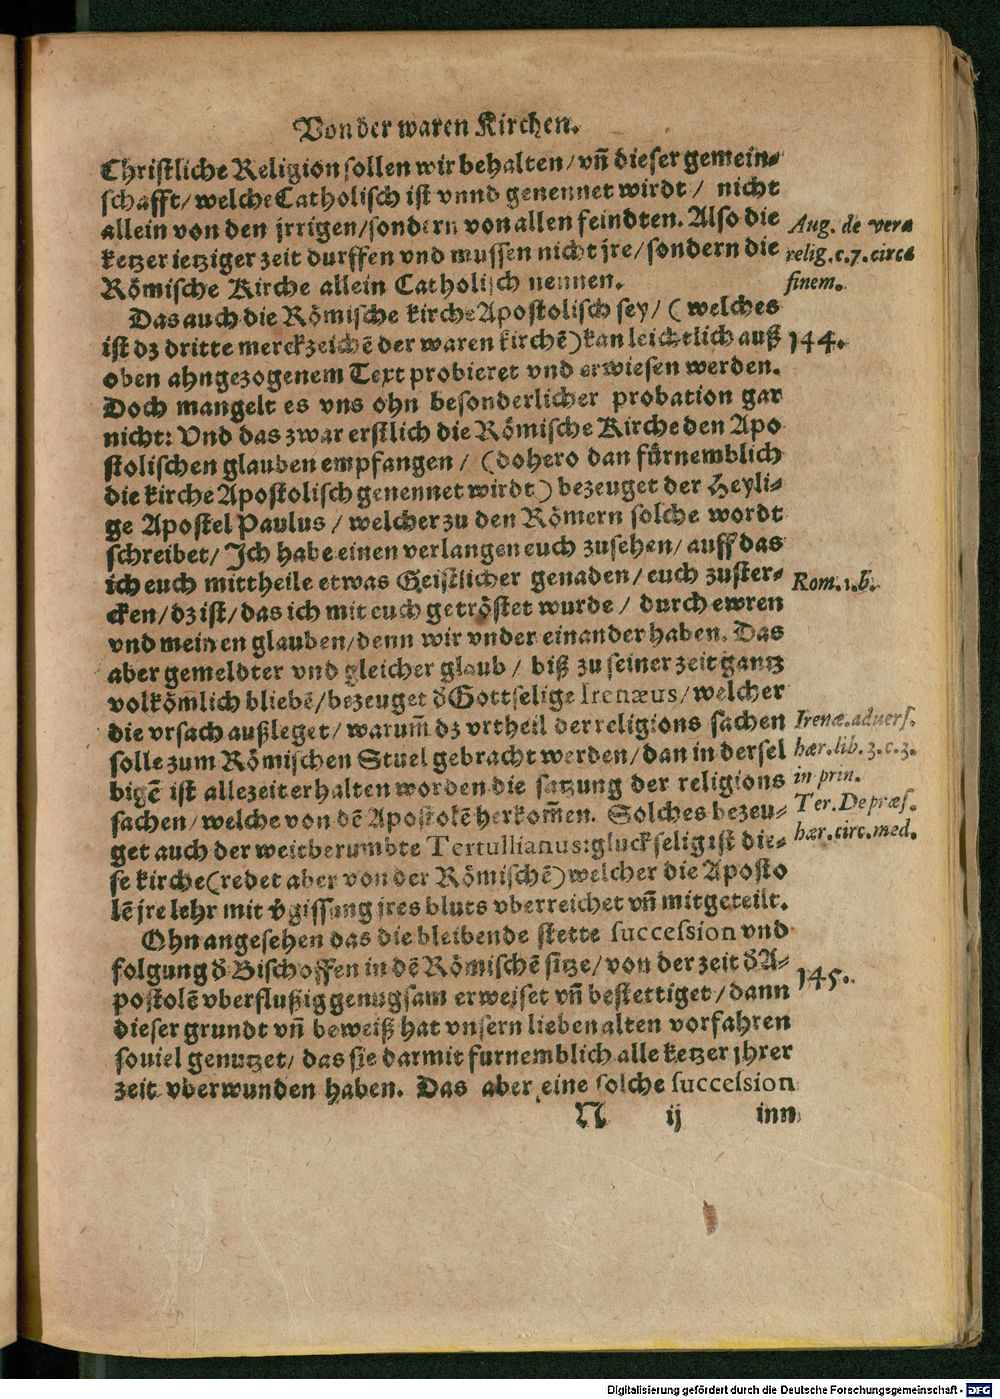 Von der waren Kirchen.
Christliche Religion sollen wir behalten/ vñ dieser gemein-
schafft/ welche Catholisch ist vnnd genennet wirdt/ nicht
allein von den jrrigen/ sondern von allen feindten. Also die
ketzer ietziger zeit durffen vnd mussen nicht jre/ sondern die
Römische Kirche allein Catholisch nennen.
Aug. de vera
relig. c. 7. circa
finem.
Das auch die Römische kirche Apostolisch sey/ (welches
ist dz dritte merckzeichē der waren kirchē) kan leichtlich auß
144.
oben ahngezogenem Text probieret vnd erwiesen werden.
Doch mangelt es vns ohn besonderlicher probation gar
nicht: Vnd das zwar erstlich die Römische Kirche den Apo
stolischen glauben empfangen/ (dohero dan fürnemblich
die kirche Apostolisch genennet wirdt) bezeuget der Heyli-
ge Apostel Paulus/ welcher zu den Römern solche wordt
schreibet/ Ich habe einen verlangen euch zusehen/ auff das
ich euch mittheile etwas Geistlicher genaden/ euch zuster-
Rom. 1. b.
cken/ dz ist/ das ich mit euch getröstet wurde/ durch ewren
vnd meinen glauben/ denn wir vnder einander haben. Das
aber gemeldter vnd gleicher glaub/ biß zu seiner zeit gantz
volkōmlich bliebē/ bezeuget d̕ Gottselige Irenæus/ welcher
die vrsach außleget/ warum̃ dz vrtheil der religions sachen
solle zum Römischen Stuel gebracht werden/ dan in dersel
bigē ist allezeit erhalten worden die satzung der religions
sachen/ welche von dē Apostolē herkom̃en. Solches bezeu-
get auch der weitberumbte Tertullianus: gluckselig ist die-
se kirche (redet aber von der Römischē) welcher die Aposto
lē jre lehr mit v̕gissung jres bluts vberreichet vñ mitgeteilt.
Irenæ. aduers.
hær. lib. 3. c. 3.
in prin.
Ter. De præs.
hær. circ. med.
Ohn angesehen das die bleibende stette succession vnd
folgung d̕ Bischoffen in dē Römischē sitze/ von der zeit d̕ A-
145.
postolē vberflußig genugsam erweiset vñ bestettiget/ dann
dieser grundt vñ beweiß hat vnsern lieben alten vorfahren
souiel genutzet/ das sie darmit furnemblich alle ketzer jhrer
zeit vberwunden haben. Das aber eine solche succession
N ij inn
Digitalisierung gefördert durch die Deutsche Forschungsgemeinschaft - DFG